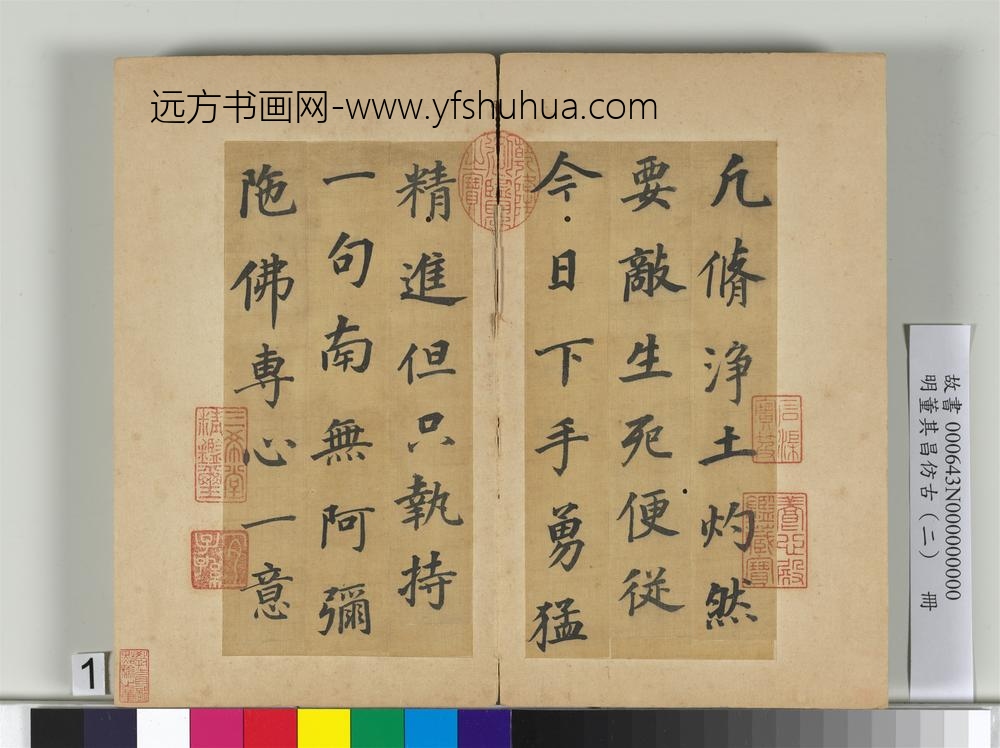 远方书画网-www.yfshuhua.com
凢脩淨土灼然
要敵生死便従
今日下手勇猛
精進但只執持
一句南無阿彌
陁佛専心一意
三希堂精鑑璽
養心殿鑑藏寶
石渠寶笈
故書 000643N000000000
明董其昌仿古（二） 冊
1